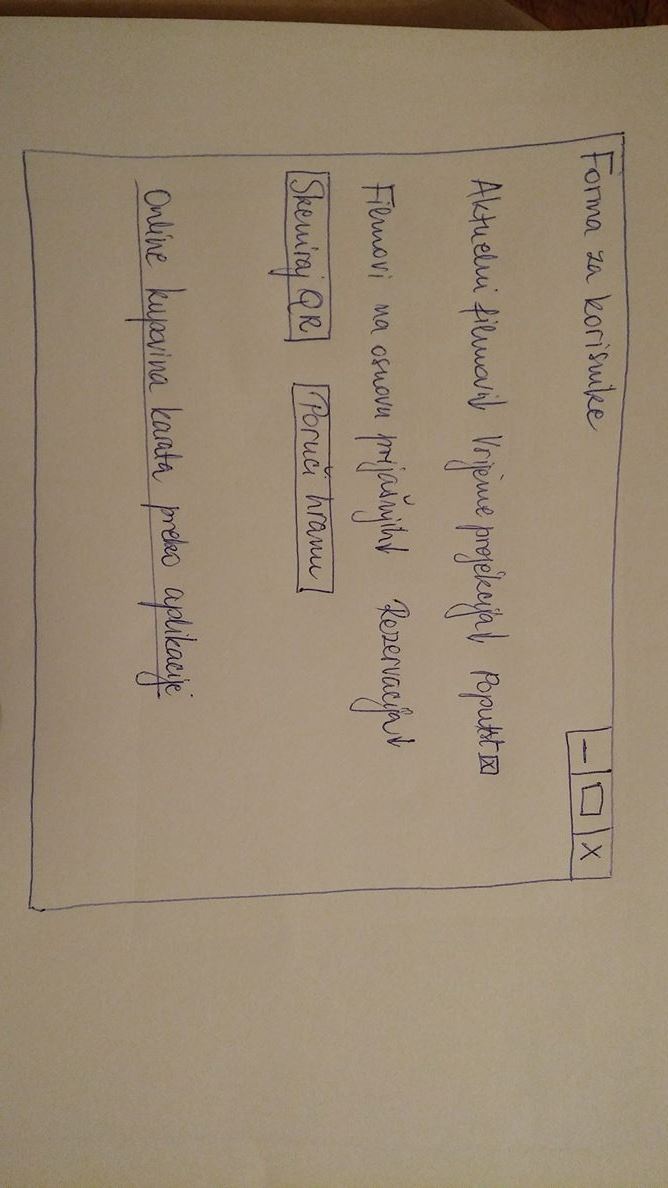 Forma za korisnike
Aktuelni filmovi↓ Vrijeme projekcija↓ Popust ☒
Filmovi na osnovu prijašnjih↓ Rezervacija↓
Skeniraj QR Poruči hranu
Online kupovina karata preko aplikacije